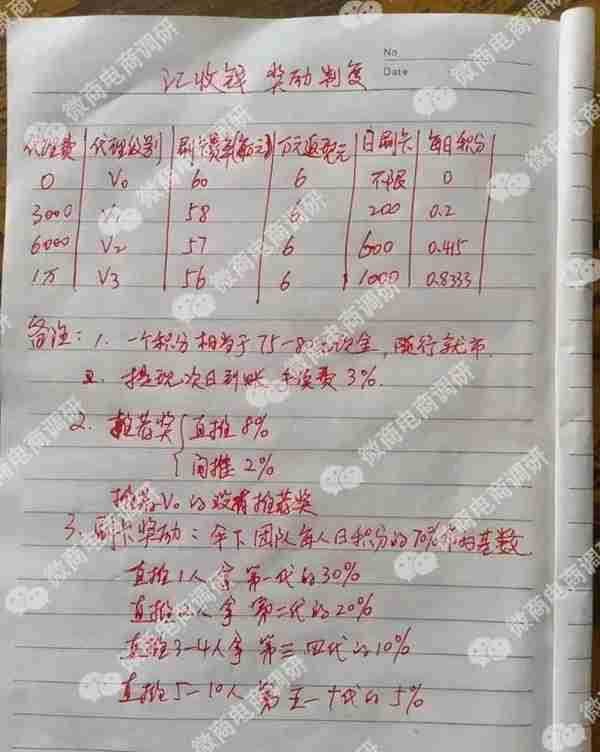 No
Date
汇收钱 奖励制度
代理费 代理级别 刷卡费率(每万元) 万元返现元 日刷卡 每日积分
0 V0 60 6 不限 0
3000 V1 58 6 200 0.2
6000 V2 57 6 600 0.415
1万 V3 56 6 1000 0.8333
备注: 1. 一个积分相当于75-80元现金,随行就市
2. 提现次日到账 手续费 3%.
2. 推荐奖 直推 8%
间推 2%
推荐V0的没有推荐奖
3. 刷卡奖励: 伞下团队每人日积分的70%作为基数
直推1人拿 第一代的30%
直推2人拿 第二代的20%
直推3-4人拿 第三 四代的10%
直推5-10人 第五-十代的5%
微商电商调研